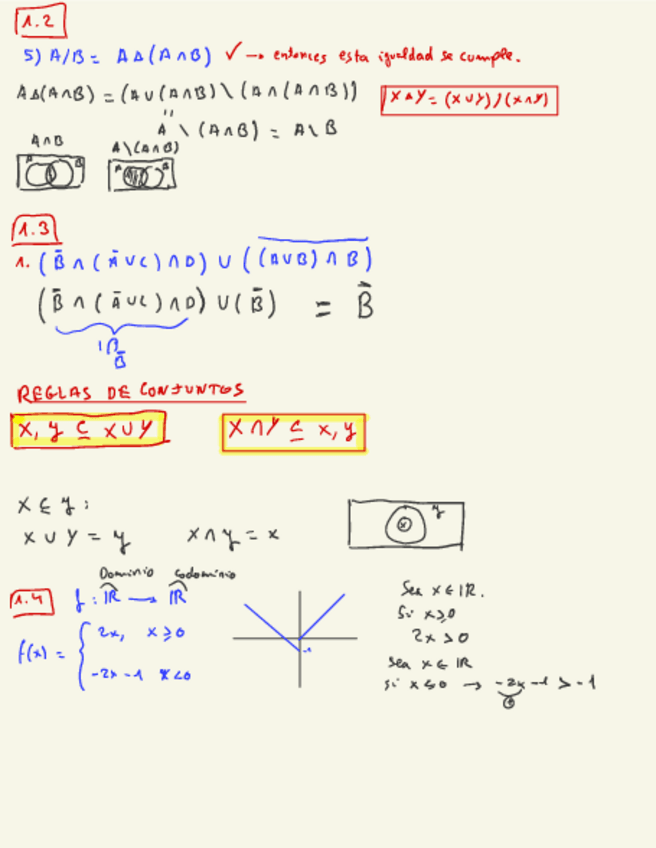 1.2
5) A/B = A Δ (A ∩ B) ✓ → entonces esta igualdad se cumple.
A Δ (A ∩ B) = (A ∪ (A ∩ B) \ (A ∩ (A ∩ B))
X Δ Y = (X ∪ Y) \ (X ∩ Y)
"
A \ (A ∩ B) = A \ B
A ∩ B
A \ (A ∩ B)
A B
A B
1.3
1. (B̄ ∩ (Ā ∪ C) ∩ D) ∪ (\overline{(A ∪ B) ∩ B})
(B̄ ∩ (Ā ∪ C) ∩ D) ∪ (B̄) = B̄
B̄
REGLAS DE CONJUNTOS
X, Y ⊆ X ∪ Y
X ∩ Y ⊆ X, Y
X ⊆ Y :
X ∪ Y = Y X ∩ Y = X
X Y
Dominio Codominio
1.4 f : ℝ → ℝ
f(x) = { 2x, x ≥ 0
-2x - 1 x < 0
-1
Sea x ∈ ℝ.
Si x ≥ 0
2x > 0
Sea x ∈ ℝ
Si x ≤ 0 → -2x - 1 > -1